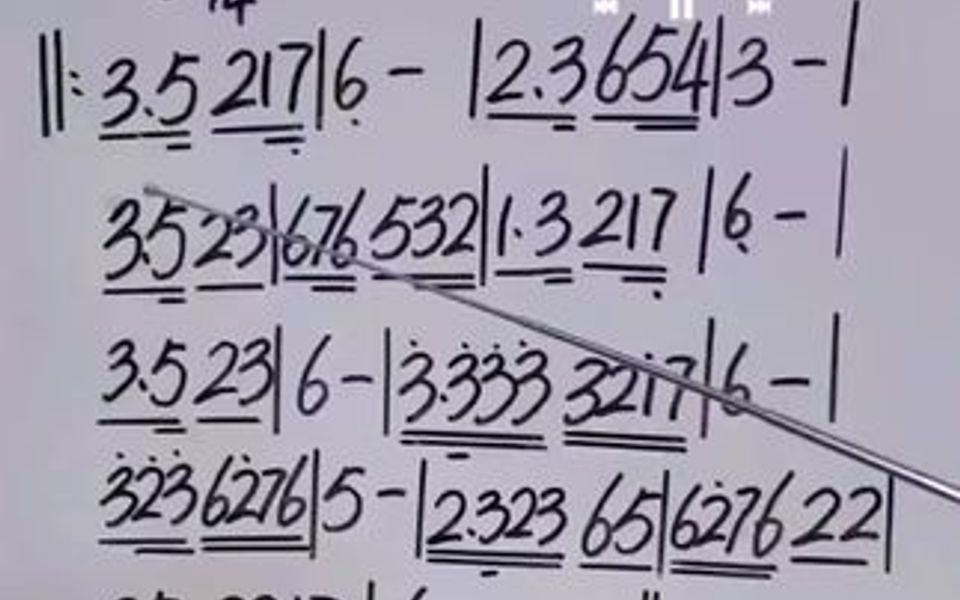 4
‖: 3.5 217 | 6 - | 2.3 654 | 3 - |
3.5 23 | 676 532 | 1.3 217 | 6 - |
3.5 23 | 6 - | 3.333 3217 | 6 - |
323 6276 | 5 - | 2.323 65 | 6276 22 |